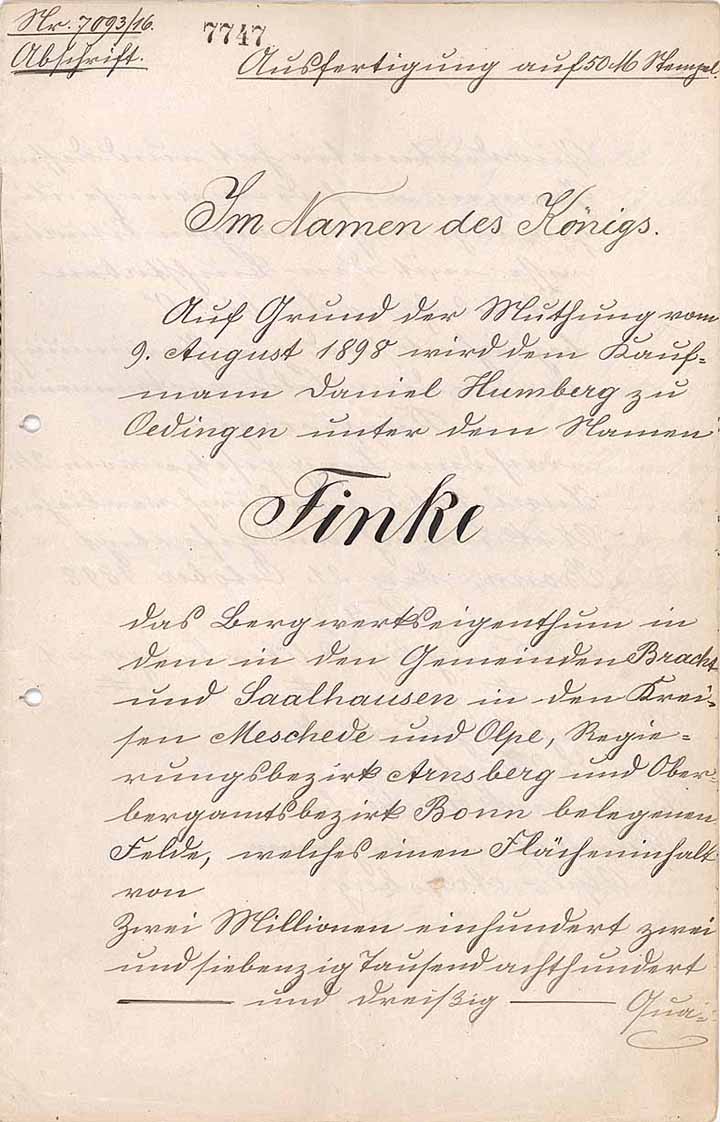 Nr. 7093/16.
Abschrift.
7747
Ausfertigung auf 50 M Stempel.
Im Namen des Königs.
Auf Grund der Muthung vom
9. August 1898 wird dem Kauf=
mann Daniel Humberg zu
Oedingen unter dem Namen
Finke
das Bergwerkseigenthum in
dem in den Gemeinden Bracht
und Saalhausen in den Krei=
sen Meschede und Olpe, Regie=
rungsbezirk Arnsberg und Ober=
bergamtsbezirk Bonn belegenen
Felde, welches einen Flächeninhalt
von
Zwei Millionen einhundert zwei
und siebenzig Tausend achthundert
und dreißig
Qua=